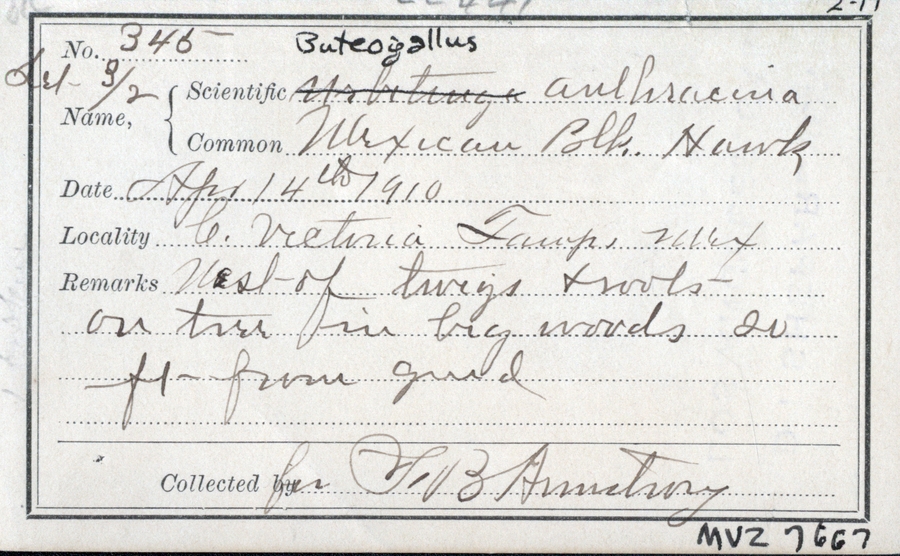 2-11
No. 345
Buteogallus
Set 3/2
Scientific Urbitinga anthracina
Name,
Common Mexican Blk. Hawk
Date Apr 14th 1910
Locality C. Victoria Tamps, Mex
Remarks Nest of twigs & roots
on tree in big woods 20
ft from grnd
Collected by for F B Armstrong
MVZ 7667